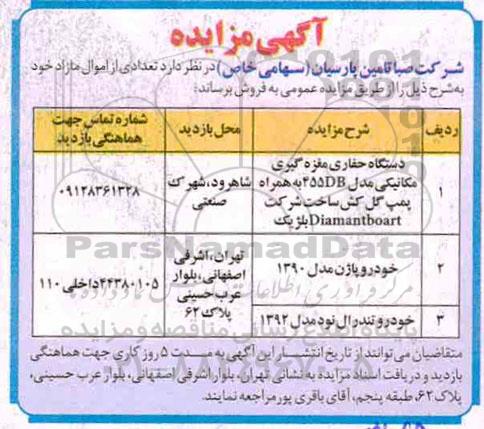 آگهی مزایده
شرکت صبا تامین پارسیان (سهامی خاص) در نظر دارد تعدادی از اموال مازاد خود
به شرح ذیل را از طریق مزایده عمومی به فروش برساند:
ردیف شرح مزایده محل بازدید شماره تماس جهت هماهنگی بازدید
۱ دستگاه حفاری مغزه گیری
مکانیکی مدل ۴۵۵DB به همراه
پمپ گل کش ساخت شرکت
Diamantboart بلژیک
شاهرود، شهرک
صنعتی
۰۹۱۲۸۳۶۱۳۲۸
۲ خودرو پاژن مدل ۱۳۹۰
۳ خودرو تندر ال نود مدل ۱۳۹۲
تهران، اشرفی
اصفهانی، بلوار
عرب حسینی
پلاک ۶۲
۴۴۳۸۰۱۰۵ داخلی ۱۱۰
ParsNamadData
متقاضیان می‌توانند از تاریخ انتشار این آگهی به مدت ۵ روز کاری جهت هماهنگی
بازدید و دریافت اسناد مزایده به نشانی تهران، بلوار اشرفی اصفهانی، بلوار عرب حسینی،
پلاک ۶۲، طبقه پنجم، آقای باقری پور مراجعه نمایند.